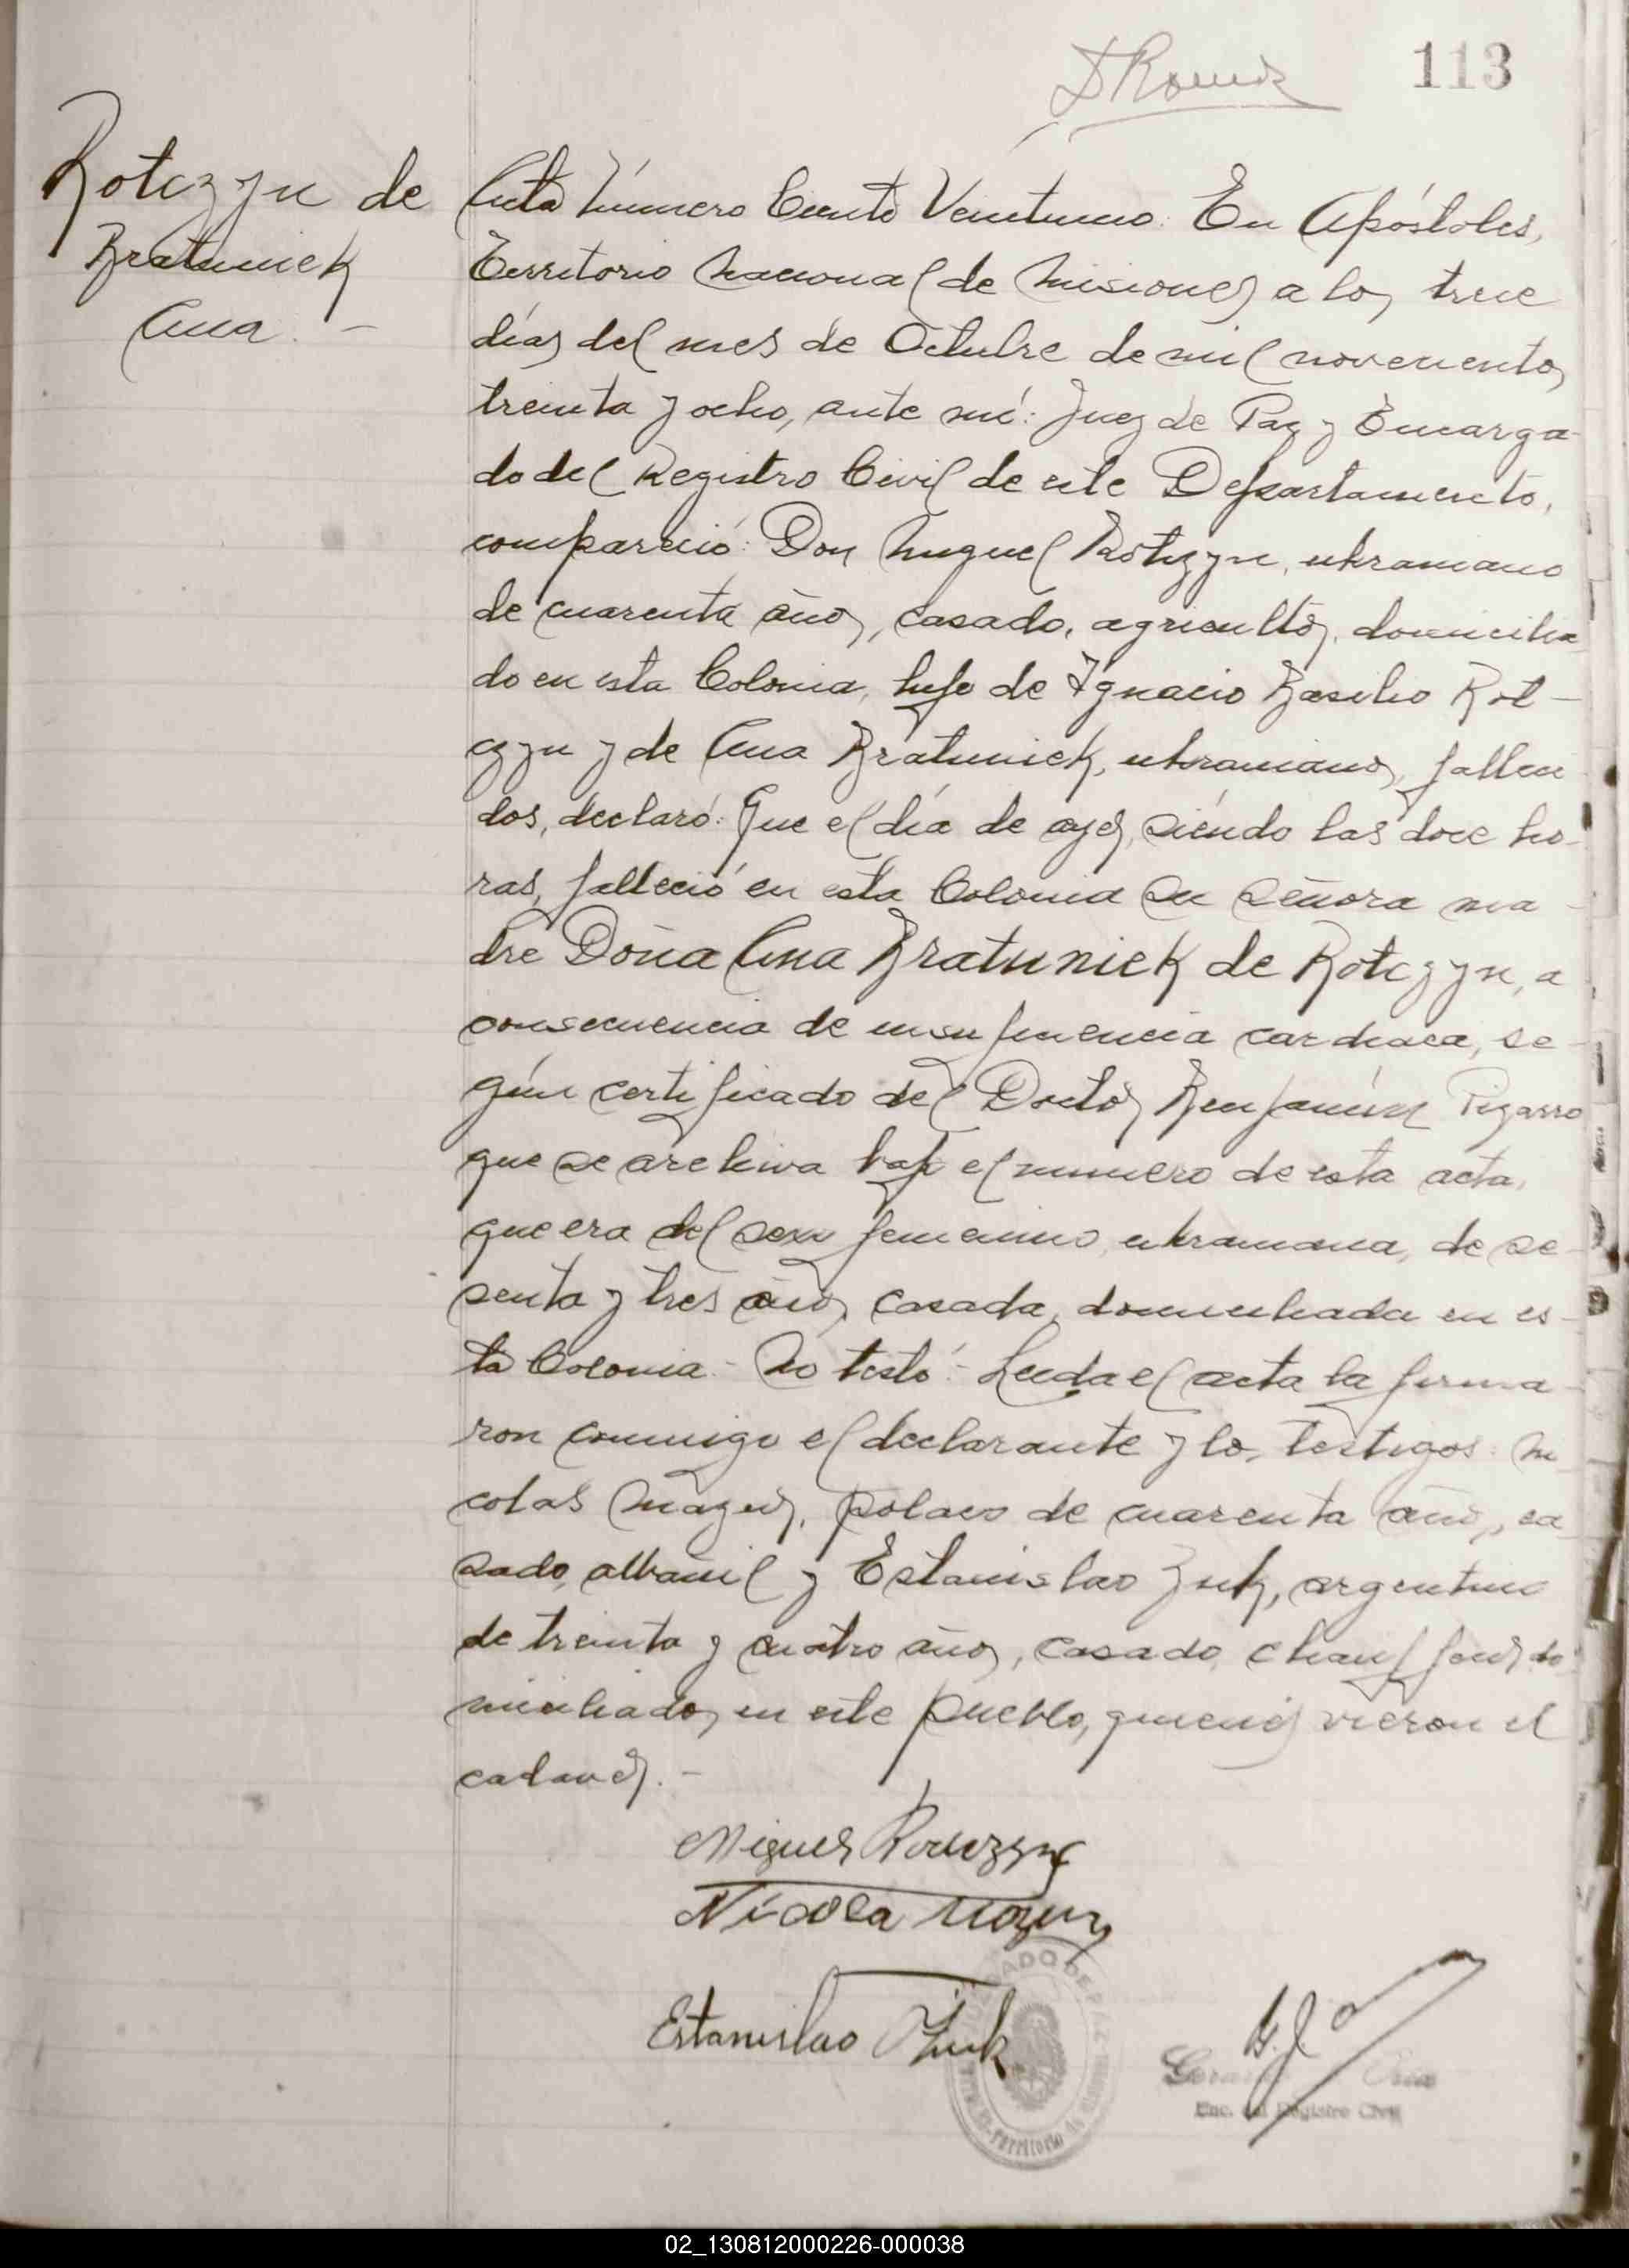 113
Rotczyn de
Bratuniek
Ana. -
Acta Número Ciento Veintiuno: En Apóstoles,
Territorio Nacional de Misiones a los trece
días del mes de Octubre de mil novecientos
treinta y ocho, ante mí: Juez de Paz y Encarga-
do del Registro Civil de este Departamento,
compareció: Don Miguel Rotczyn, ukraniano
de cuarenta años, casado, agricultor, domicilia
do en esta Colonia, hijo de Ignacio Basilio Rot-
czyn y de Ana Bratuniek, ukranianos, falleci
dos, declaró: Que el día de ayer, siendo las doce ho-
ras, falleció en esta Colonia su señora ma-
dre Doña Ana Bratuniek de Rotczyn, a
consecuencia de insuficiencia cardiaca, se-
gún certificado del Doctor Benjamín Pizarro
que se archiva bajo el número de esta acta,
que era del sexo femenino, ukraniana, de se-
senta y tres años, casada, domiciliada en es-
ta Colonia - No testó - Leida el acta la firma-
ron conmigo el declarante y los testigos: Ni
colas Mazur, polaco de cuarenta años, ca
sado, albañil y Estanislao Zuk, argentino
de treinta y cuatro años, casado, chauffeur, do
miciliados en este pueblo, quienes vieron el
cadaver. -
Miguel Rotczyn
Nicola Mazur
Estanislao Zuk
Enc. del Registro Civil
02_130812000226-000038